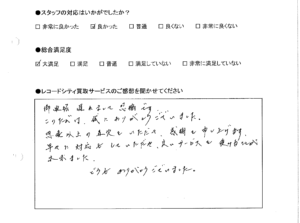 ●スタッフの対応はいかがでしたか？
□非常に良かった ☑良かった □普通 □良くない □非常に良くない
●総合満足度
☑大満足 □満足 □普通 □満足していない □非常に満足していない
●レコードシティ買取サービスのご感想を聞かせてください
この度は、誠にありがとうございました。
以上の査定をいただき、感謝を申し上げます。
早々に対応をしていただき、良いサービスを受けることが
出来ました。
どうもありがとうございました。